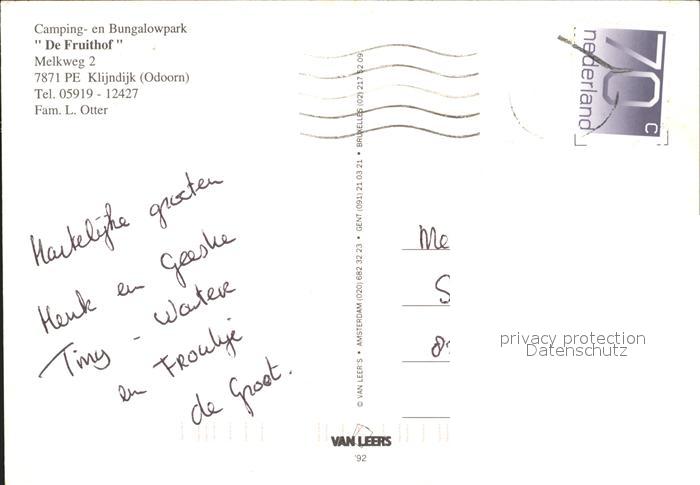 Camping- en Bungalowpark
" De Fruithof "
Melkweg 2
7871 PE Klijndijk (Odoorn)
Tel. 05919 - 12427
Fam. L. Otter
Hartelijke groeten
Henk en Geeske
Timy - Wouter
en Froukje
de Groot.
© VAN LEER'S • AMSTERDAM (020) 682 32 23 • GENT (091) 21 03 21 • BRUXELLES (02) 217 52 09
70 c
nederland
Me
S
privacy protection
Datenschutz
VAN LEERS
'92